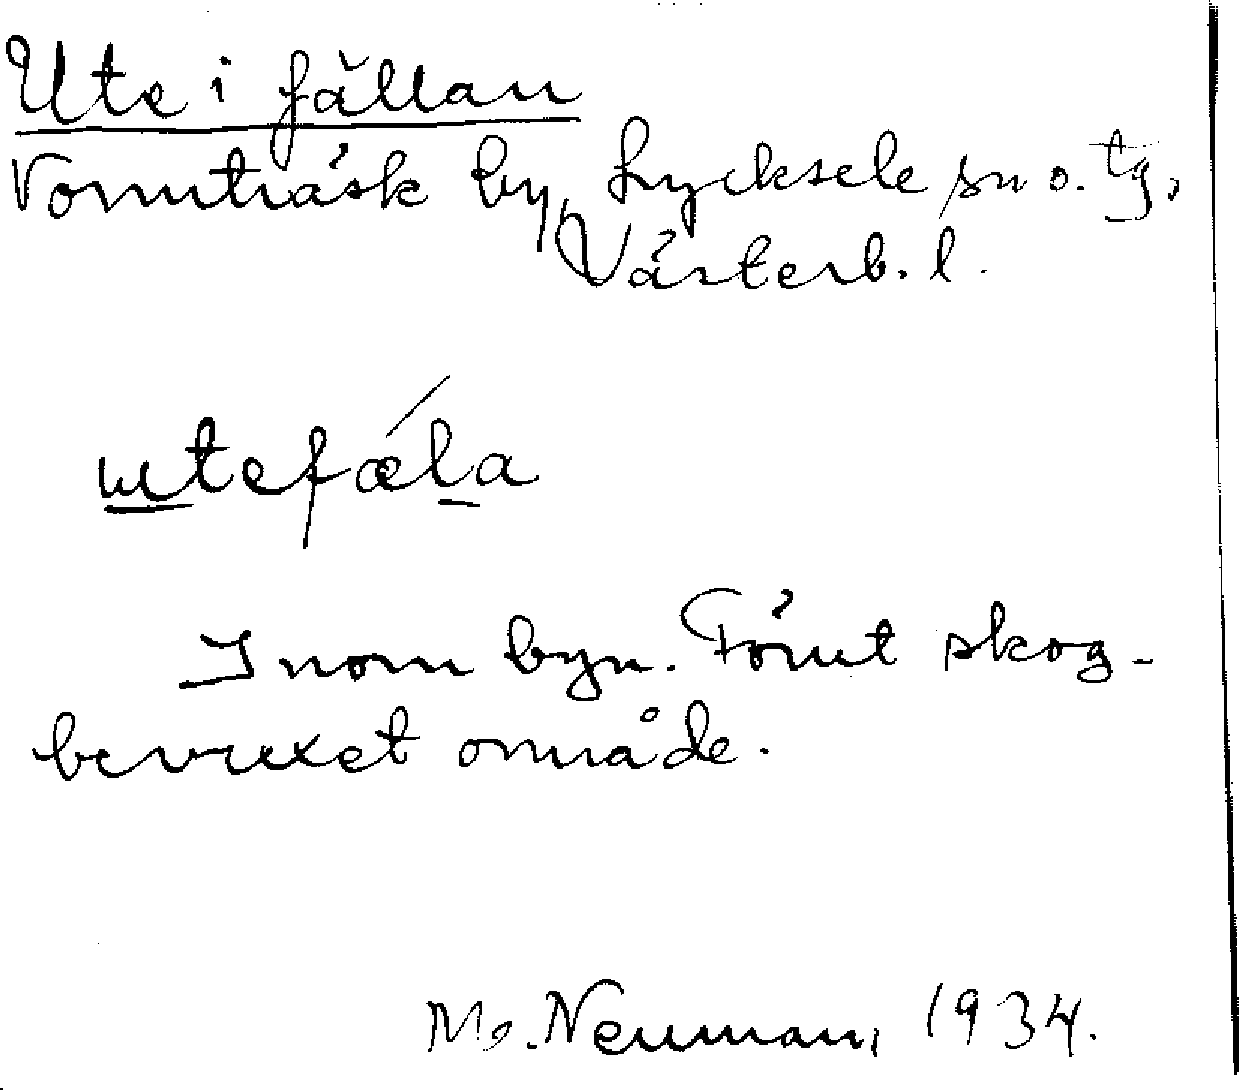 Ute i fällan
Vormträsk by, Lycksele sn o. tg,
Västerb. l.
utefæla
Inom byn. Förut skog-
bevuxet område.
M. Neuman, 1934.